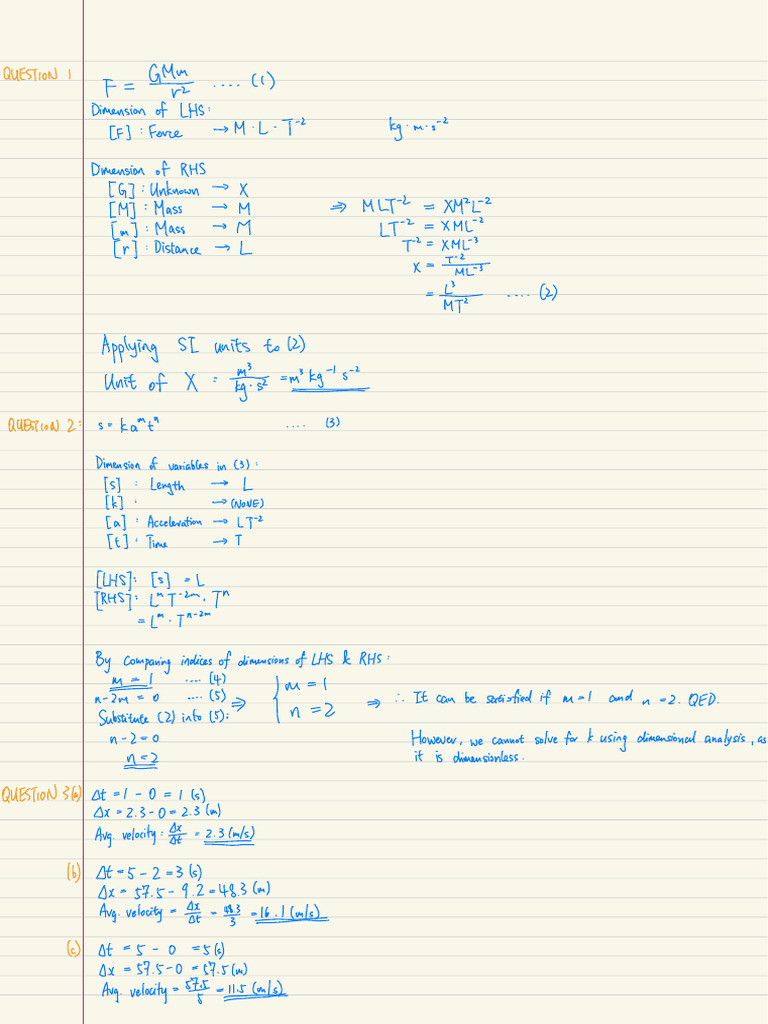 QUESTION 1
F = GMm/r² .... (1)
Dimension of LHS:
[F] : Force → M · L · T⁻² kg · m · s⁻²
Dimension of RHS
[G] : Unknown → X
[M] : Mass → M ⇒ MLT⁻² = XM²L⁻²
[m] : Mass → M LT⁻² = XML⁻²
[r] : Distance → L T⁻² = XML⁻³
X = T⁻²/ML⁻³
= L³/MT² .... (2)
Applying SI units to (2)
Unit of X = m³/kg · s² = m³ kg⁻¹ s⁻²
QUESTION 2: s = k aᵐ tⁿ .... (3)
Dimension of variables in (3) :
[s] : Length → L
[k] : → (NONE)
[a] : Acceleration → LT⁻²
[t] : Time → T
[LHS]: [s] = L
[RHS]: Lᵐ T⁻²ᵐ · Tⁿ
= Lᵐ · Tⁿ⁻²ᵐ
By comparing indices of dimensions of LHS & RHS :
m = 1 .... (4)
n-2m = 0 .... (5)
Substitute (2) into (5):
n - 2 = 0
n = 2
⇒ { m = 1
n = 2
⇒ ∴ It can be satisfied if m = 1 and n = 2. QED.
However, we cannot solve for k using dimensional analysis, as
it is dimensionless.
QUESTION 3(a) Δt = 1 - 0 = 1 (s)
Δx = 2.3 - 0 = 2.3 (m)
Avg. velocity : Δx/Δt = 2.3 (m/s)
(b) Δt = 5 - 2 = 3 (s)
Δx = 57.5 - 9.2 = 48.3 (m)
Avg. velocity = Δx/Δt = 48.3/3 = 16.1 (m/s)
(c) Δt = 5 - 0 = 5 (s)
Δx = 57.5 - 0 = 57.5 (m)
Avg. velocity = 57.5/5 = 11.5 (m/s)